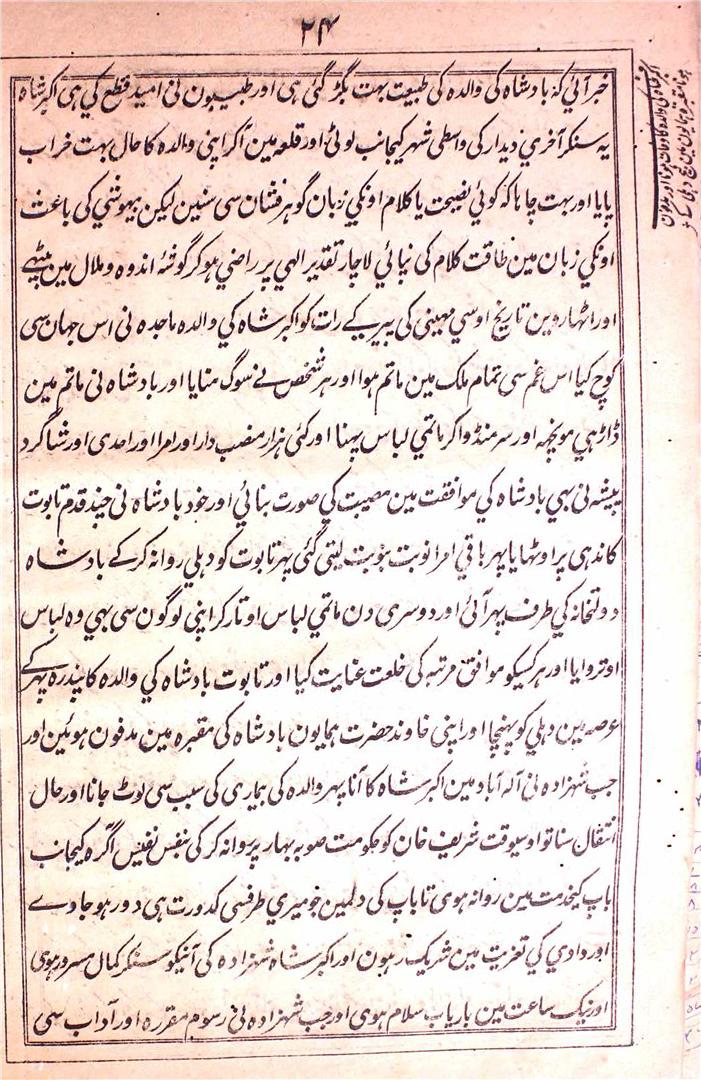 ۲۴
خبر آئی که بادشاه کی والده کی طبیعت بہت بگڑ گئی ہی اور طبیبون نی امید قطع کی ہی اکبر شاه
یہ سنکر آخری دیدار کی واسطی شہر کیجانب لوٹی اور قلعہ مین آکر اپنی والده کا حال بہت خراب
پایا اور بہت چاہا که کوئی نصیحت یا کلام اونکی زبان گوہر فشان سی سنین لیکن بیہوشی کی باعث
اونکی زبان مین طاقت کلام کی نپائی لاچار تقدیر الہی پر راضی ہوکر گوشۂ اندوه و ملال مین بیٹھے
اور اٹھاروین تاریخ اوسی مہینی کی پیر کے رات کو اکبر شاه کی والده ماجده نی اس جہان سی
کوچ کیا اس غم سی تمام ملک مین ماتم ہوا اور ہر شخص نے سوگ منایا اور بادشاه نی ماتم مین
ڈاڑہی مونچہہ اور سر منڈواکر ماتمی لباس پہنا اور کئی ہزار منصب دار اور امرا اور احدی اور شاگرد
پیشہ نی بہی بادشاه کی موافقت مین مصیبت کی صورت بنائی اور خود بادشاه نی چند قدم تابوت
کاندہی پر اوٹھایا پہر باقی امرا نوبت بنوبت لیتی گئی پہر تابوت کو دہلی روانہ کرکے بادشاه
دولتخانہ کی طرف پہر آئی اور دوسری دن ماتمی لباس اوتار کر اپنی لوگون سی بہی وه لباس
اوتروایا اور ہر کسیکو موافق مرتبہ کی خلعت عنایت کیا اور تابوت بادشاه کی والده کا پندره پہر کے
عرصہ مین دہلی کو پہنچا اور اپنی خاوند حضرت ہمایون بادشاه کی مقبره مین مدفون ہوئین اور
جب شہزاده نی آلہ آباد مین اکبر شاه کا آنا پہر والده کی بیماری کی سبب سی لوٹ جانا اور حال
انتقال سنا تو اوسیوقت شریف خان کو حکومت صوبہ بہار پر روانہ کر کی بنفس نفیس آگره کیجانب
باپ کیخدمت مین روانہ ہوی تا باپ کی دلمین جو میری طرفسی کدورت ہی دور ہو جاوے
اور دادی کی تعزیت مین شریک رہون اور اکبر شاه شہزاده کی آنیکو سنکر کمال مسرور ہوی
اور نیک ساعت مین باریاب سلام ہوی اور جب شہزاده نی رسوم مقرره اور آداب سی
اکبر شاه کی والده کا وفات